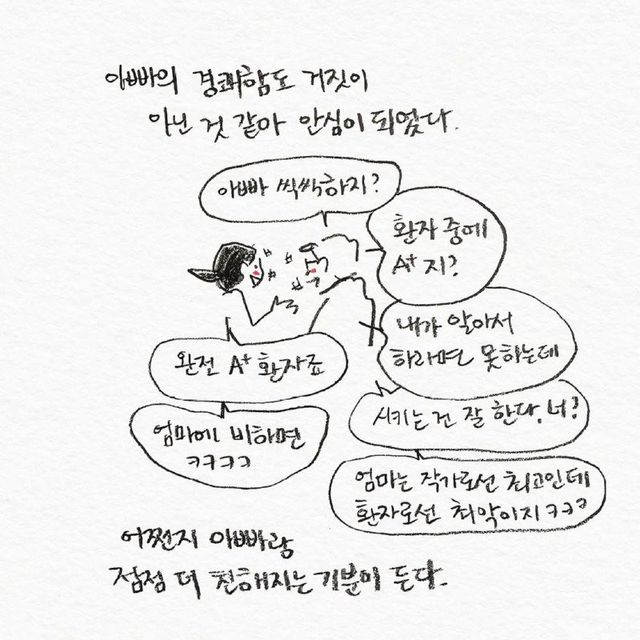 아빠의 경쾌함도 거짓이
아닌 것 같아 안심이 되었다.
아빠 씩씩하지?
환자 중에
A+ 지?
내가 알아서
하라면 못하는데
완전 A+ 환자죠
시키는 건 잘 한다, 너?
엄마에 비하면
ㅋㅋㅋㅋ
엄마는 작가로선 최고인데
환자로선 최악이지 ㅋㅋㅋ
어쩐지 아빠랑
점점 더 친해지는 기분이 든다.